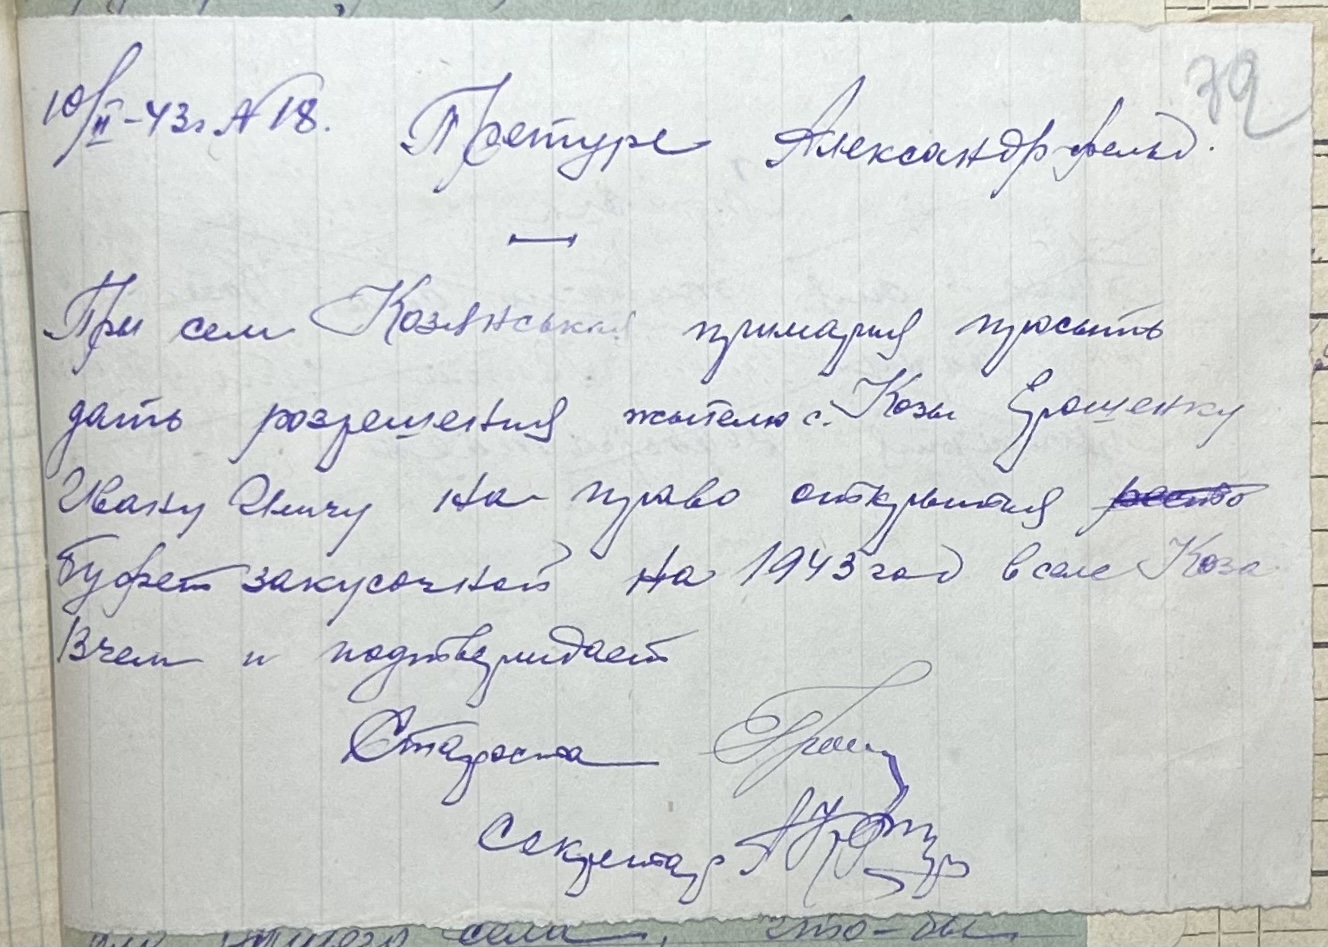 79
10/II-43г. № 18. Претуре Александрфельд.
При сем Козянськая примария просить
дать розрешения жытелю с. Козы Ерошенку
Ивану Иличу на право открытия
буфет закусочной на 1943 год в селе Коза
В чем и подтверждает
Староста
Секретар
для нашего села, что-бы